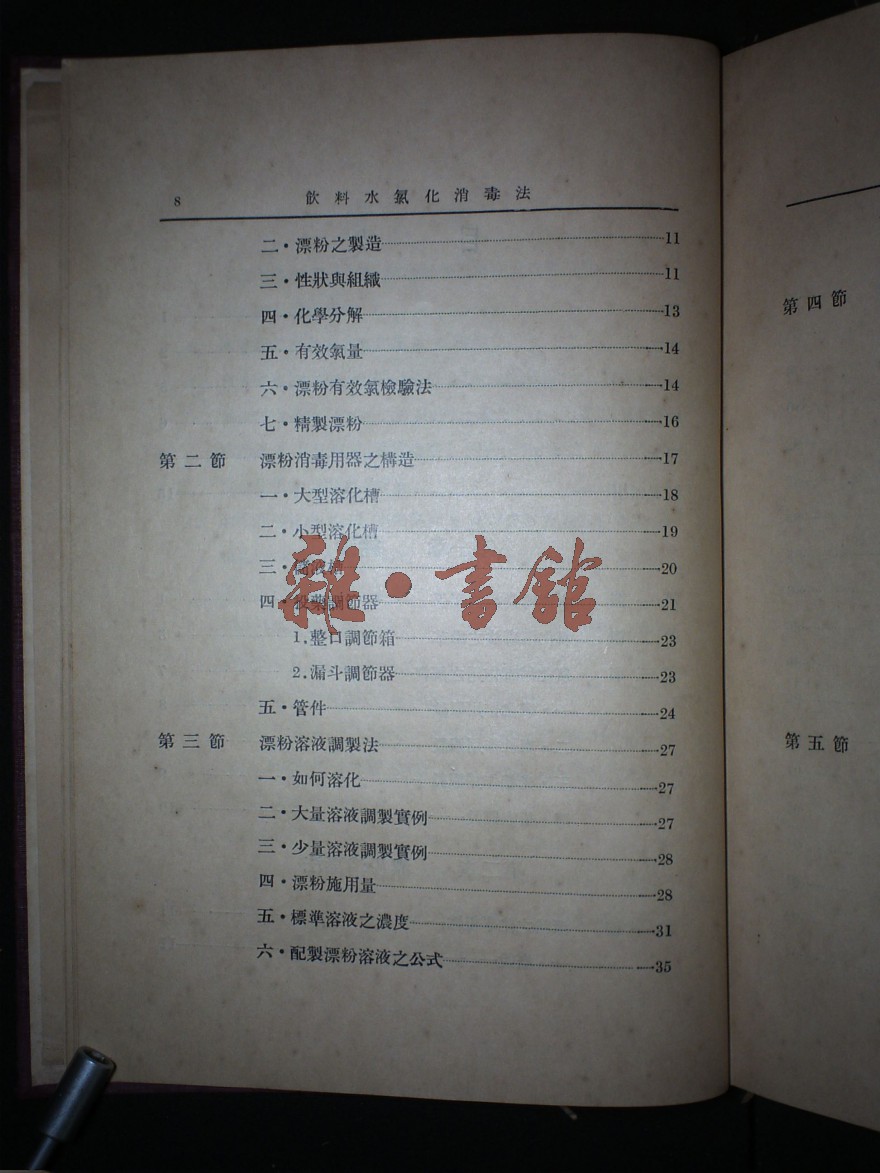 8 飲料水氯化消毒法
二·漂粉之製造 11
三·性狀與組織 11
四·化學分解 13
五·有效氯量 14
六·漂粉有效氯檢驗法 14
七·精製漂粉 16
第二節 漂粉消毒用器之構造 17
一·大型溶化槽 18
二·小型溶化槽 19
三· 20
四·投藥調節器 21
1.整口調節箱 23
2.漏斗調節器 23
五·管件 24
第三節 漂粉溶液調製法 27
一·如何溶化 27
二·大量溶液調製實例 27
三·少量溶液調製實例 28
四·漂粉施用量 28
五·標準溶液之濃度 31
六·配製漂粉溶液之公式 35
雜·書館
第四節
第五節